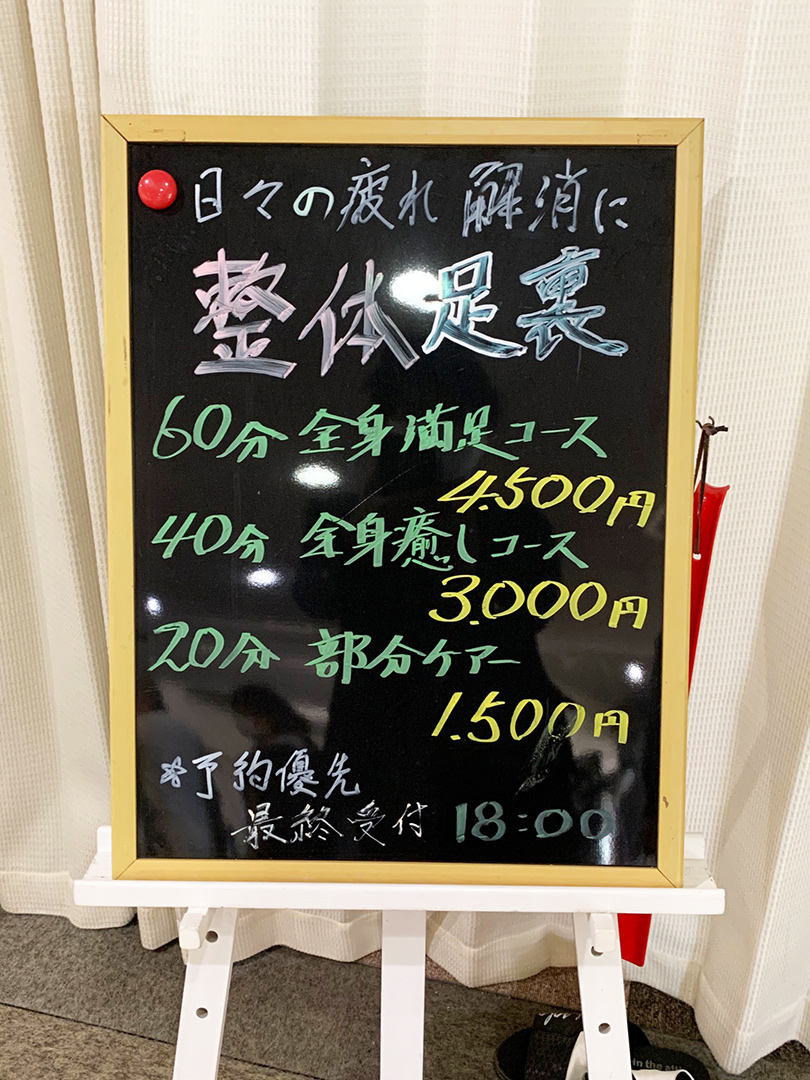 日々の疲れ解消に
整体足裏
60分 全身満足コース
4.500円
40分 全身癒しコース
3.000円
20分 部分ケアー
1.500円
*予約優先
最終受付 18:00
in the att